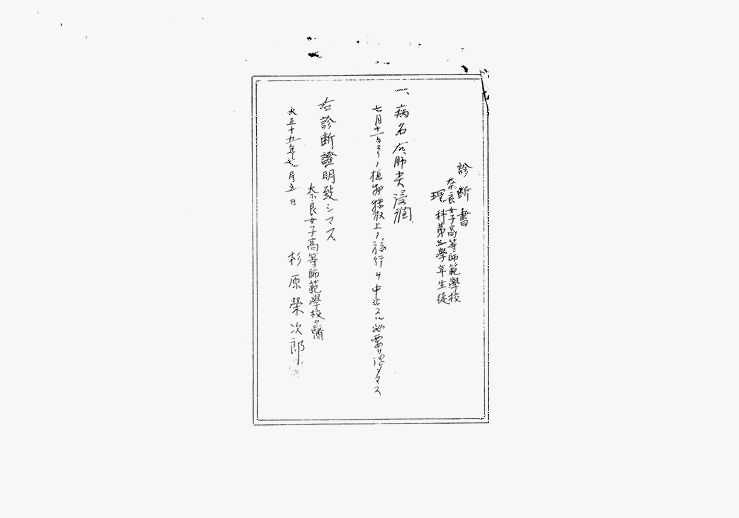 診断書
奈良女子高等師範學校
理科第三學年生徒
一、病名 右肺尖浸潤
七月十一日ヨリノ植物採取上ノ旅行ヲ中止スル必要ヲ認メマス
右診断證明致シマス
奈良女子高等師範學校醫
大正十五年 月五日
杉原榮次郎